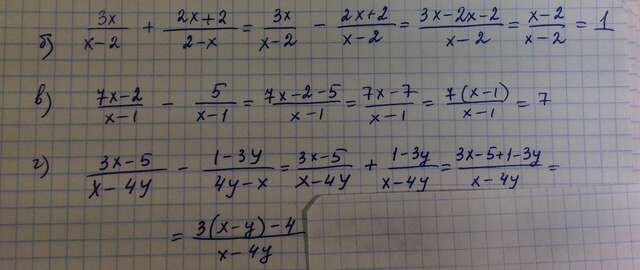 б) 3x/(x-2) + (2x+2)/(2-x) = 3x/(x-2) - (2x+2)/(x-2) = (3x-2x-2)/(x-2) = (x-2)/(x-2) = 1
в) (7x-2)/(x-1) - 5/(x-1) = (7x-2-5)/(x-1) = (7x-7)/(x-1) = 7(x-1)/(x-1) = 7
г) (3x-5)/(x-4y) - (1-3y)/(4y-x) = (3x-5)/(x-4y) + (1-3y)/(x-4y) = (3x-5+1-3y)/(x-4y) =
= (3(x-y)-4)/(x-4y)